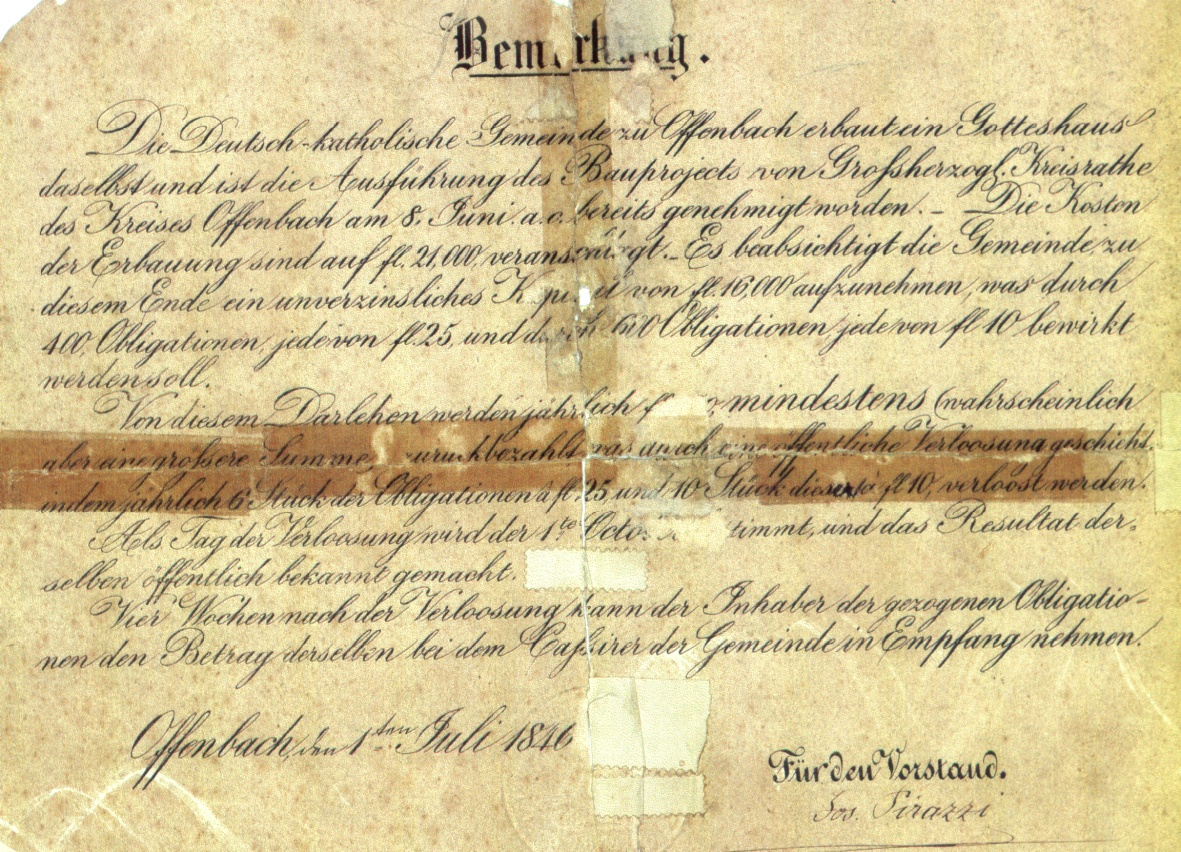 Bemerkung.
Die Deutsch-katholische Gemeinde zu Offenbach erbaut ein Gotteshaus
daselbst und ist die Ausführung des Bauprojects von Großherzogl. Kreisrathe
des Kreises Offenbach am 8. Juni a.c. bereits genehmigt worden. – Die Kosten
der Erbauung sind auf fl. 21,000, veranschlagt. – Es beabsichtigt die Gemeinde, zu
diesem Ende ein unverzinsliches Kapital von fl. 16,000 aufzunehmen, was durch
400, Obligationen, jede von fl. 25, und 600 Obligationen jede von fl 10 bewirkt
werden soll.
Von diesem Darlehen werden jährlich mindestens (wahrscheinlich
aber eine großere Summe zurückbezahlt, was durch eine öffentliche Verloosung geschieht,
indem jährlich 6 Stück der Obligationen à fl 25, und 10 Stück dieser à fl 10, verloost werden.
Als Tag der Verloosung wird der 1te bestimmt, und das Resultat der-
selben öffentlich bekannt gemacht.
Vier Wochen nach der Verloosung kann der Inhaber der gezogenen Obligatio-
nen den Betrag derselben bei dem Caßirer der Gemeinde in Empfang nehmen.
Offenbach, den 1ten Juli 1846
Für den Vorstand.
Jos. Pirazzi